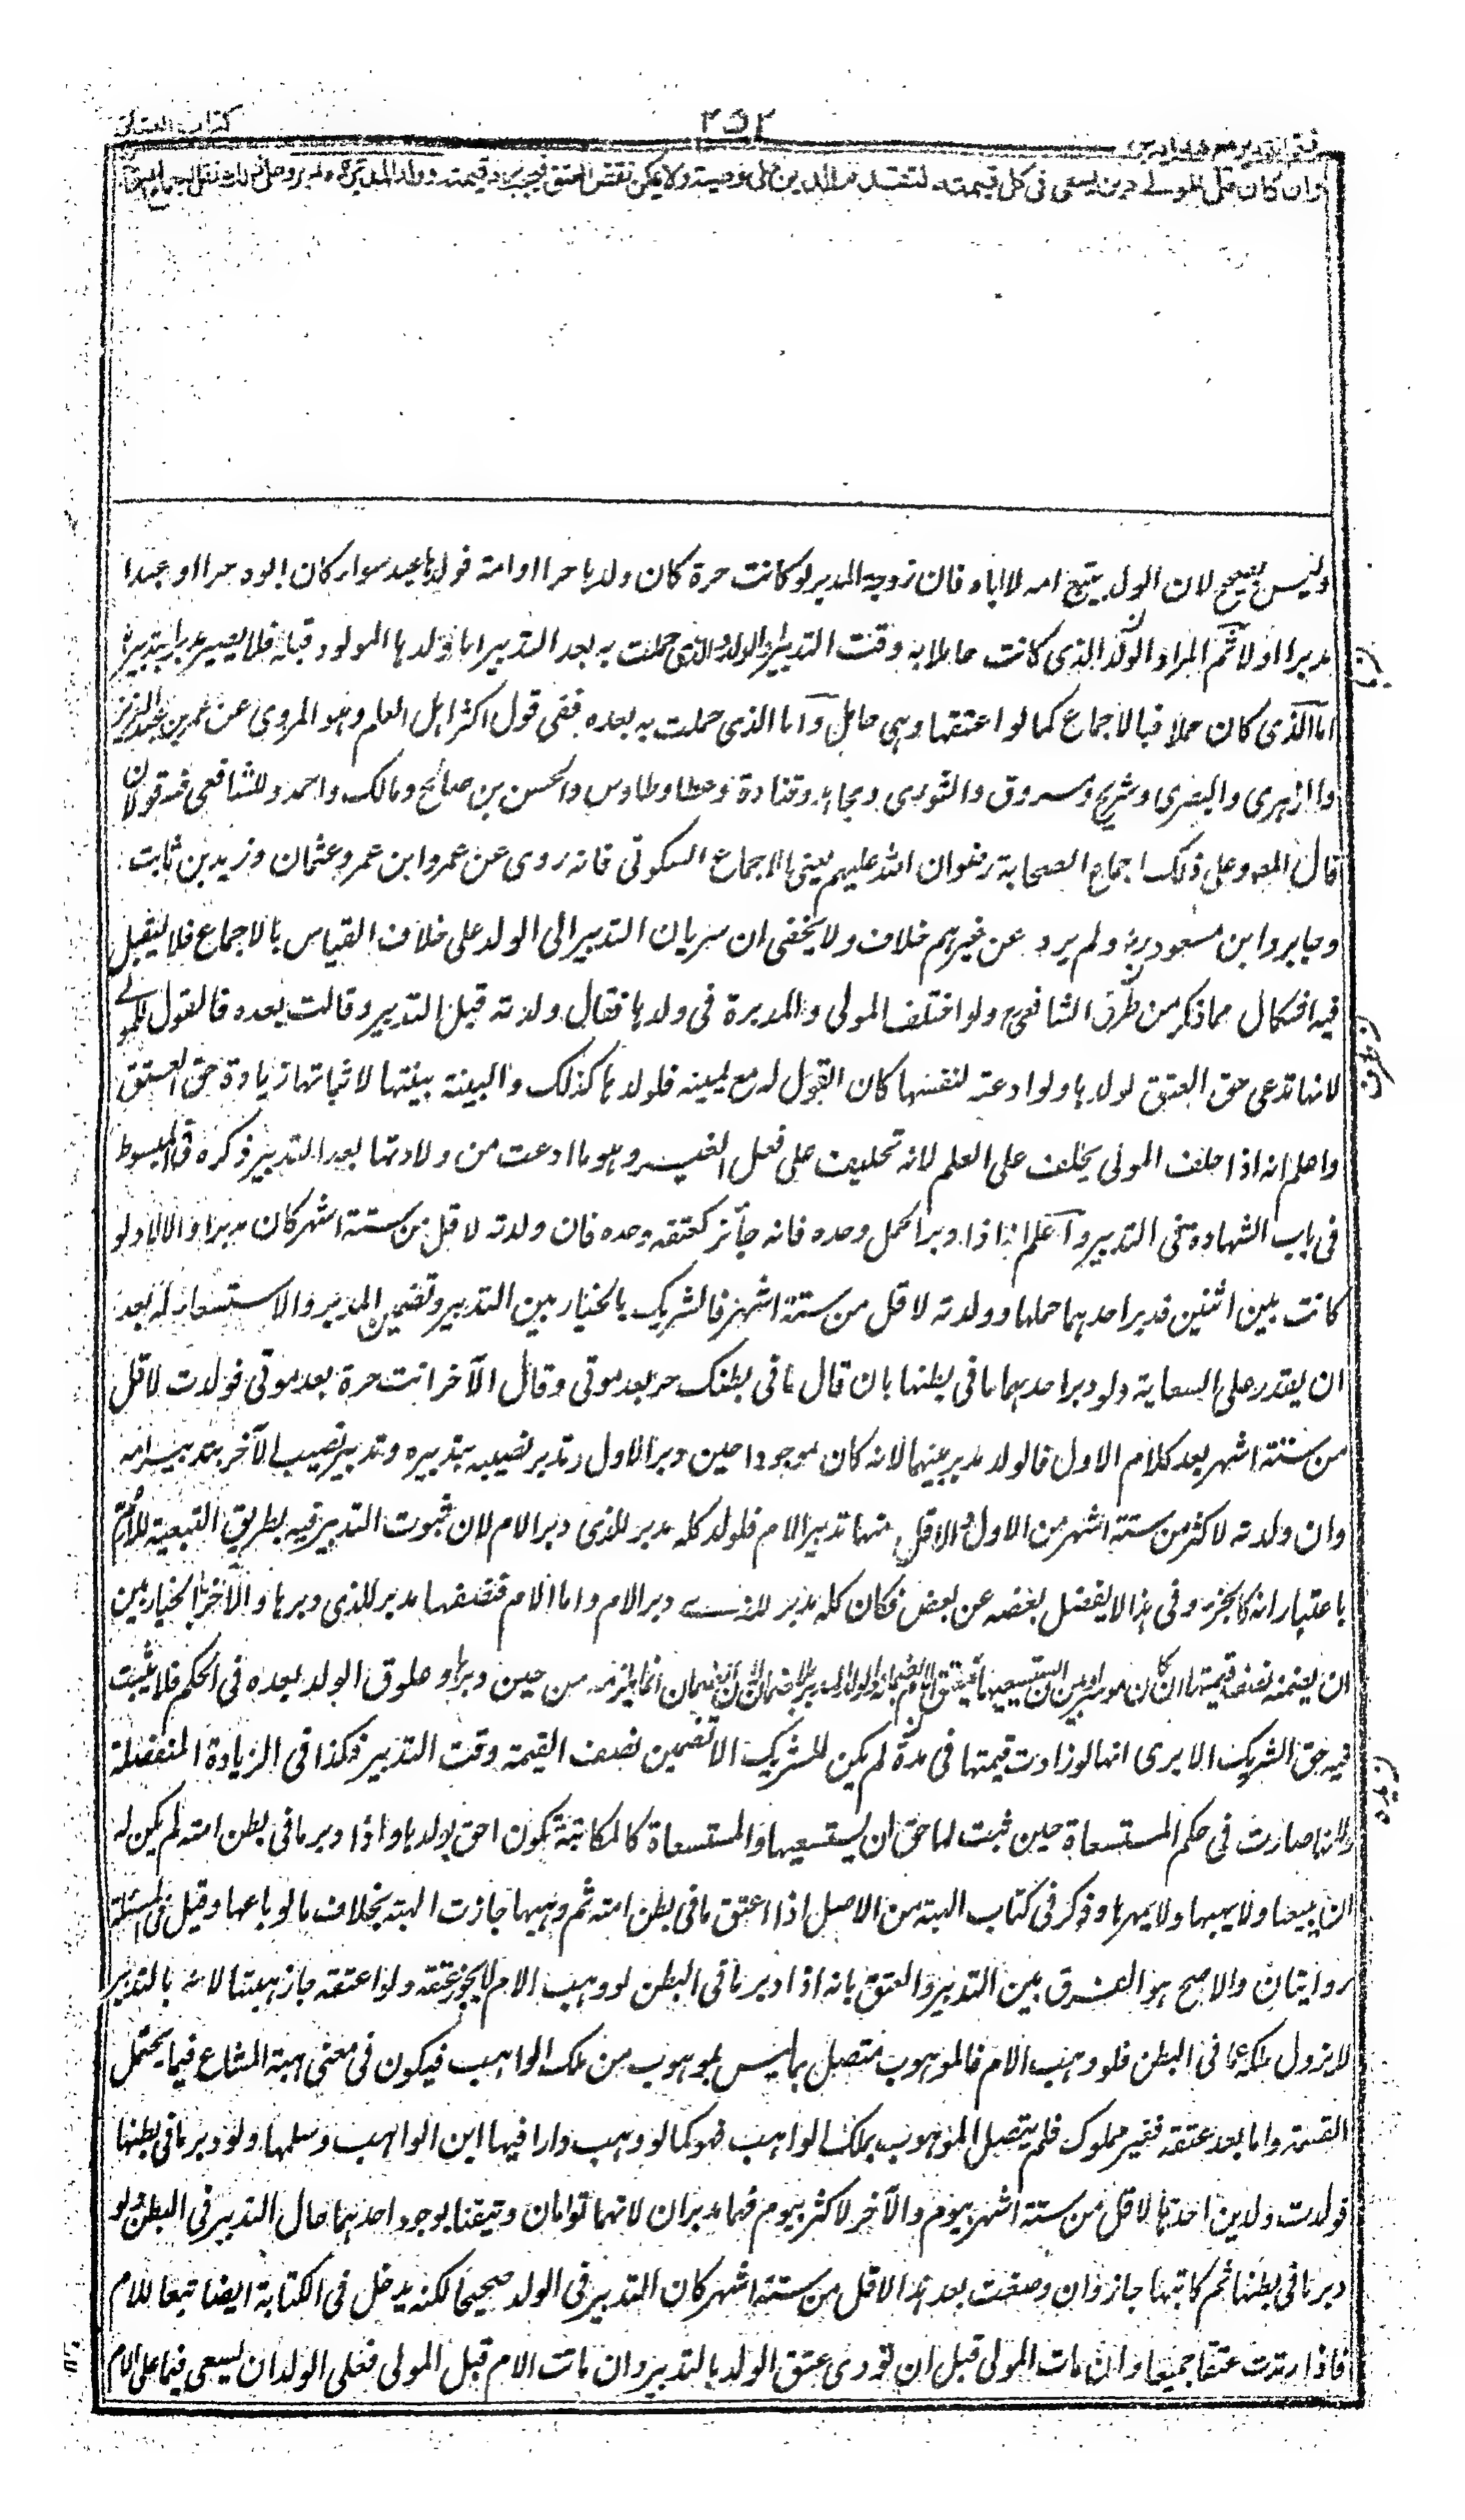 فتح القدير مع هدايه ج٢
٢٥٢
كتاب العتاق
وان كان على المولى دين يسعى فى كل قيمته لتقدم الدين على الوصية ولا يمكن نقض العتق فيجب رد قيمته وولد المدبرة مدبر وعلى ذلك نقل اجماع الصحابة
وليس بصحيح لان الولد يتبع امه لا اباه فان زوجة المدبر لو كانت حرة كان ولدها حرا او امة فولدها عبد سواء كان الزوج حرا او عبدا
مدبرا او لا ثم المراد الولد الذى كانت حاملا به وقت التدبير او الولد الذى حملت به بعد التدبير اما ولدها المولود قبله فلا يصير مدبرا بتدبيرها
اما الذى كان حملا فبالاجماع كما لو اعتقها وهى حامل واما الذى حملت به بعده ففى قول اكثر اهل العلم وهو المروى عن عمر بن عبد العزيز
والزهرى والبصرى وشريح ومسروق والثورى ومجاهد وقتادة وعطا وطاوس والحسن بن صالح ومالك واحمد وللشافعى فيه قولان
قال المص وعلى ذلك اجماع الصحابة رضوان الله عليهم يعنى الاجماع السكوتى فانه روى عن عمر وابن عمر وعثمان وزيد بن ثابت
وجابر وابن مسعود رض ولم يرد عن غيرهم خلاف ولا يخفى ان سريان التدبير الى الولد على خلاف القياس بالاجماع فلا يقبل
فيه اشكال مما ذكر من طرق الشافعى ولو اختلف المولى والمدبرة فى ولدها فقال ولدته قبل التدبير وقالت بعده فالقول للمولى
لانها تدعى حق العتق لولدها ولو ادعته لنفسها كان القول له مع يمينه فلولدها كذلك والبينة بينتها لاثباتها زيادة حق العتق
واعلم انه اذا حلف المولى يحلف على العلم لانه تحليف على فعل الغير وهو ما ادعت من ولادتها بعد التدبير ذكره فى المبسوط
فى باب الشهادة فى التدبير واعلم انه اذا دبر الحمل وحده فانه جائز كعتقه وحده فان ولدته لاقل من ستة اشهر كان مدبرا والا لا ولو
كانت بين اثنين فدبر احدهما حملها وولدته لاقل من ستة اشهر فالشريك بالخيار بين التدبير وتضمين المدبر والاستسعاء له بعد
ان يقدر على السعاية ولو دبر احدهما ما فى بطنها بان قال ما فى بطنك حر بعد موتى وقال الآخر انت حرة بعد موتى فولدت لاقل
من ستة اشهر بعد كلام الاول فالولد مدبر بينهما لانه كان موجودا حين دبر الاول وتدبر نصيبه بتدبيره وتدبير نصيب الآخر بتدبير امه
وان ولدته لاكثر من ستة اشهر من الاول والاقل منها تدبير الام فلولد كله مدبر للذى دبر الام لان ثبوت التدبير فيه بطريق التبعية للام
باعتبار انه كالجزء وفى هذا لا يفصل بعضه عن بعض فكان كله مدبر للذى دبر الام واما الام فنصفها مدبر للذى دبرها والآخر بالخيار بين
ان يضمنه نصف قيمتها ان كان موسرا وبين ان يستسعيها انما يلزمه من حين دبرها وعلوق الولد بعده فى الحكم فلا يثبت
فيه حق الشريك الا يرى انها لو زادت قيمتها فى مدة لم يكن للشريك الا تضمين نصف القيمة وقت التدبير فكذا فى الزيادة المنفصلة
ولانها صارت فى حكم المستسعاة حين ثبت لها حق ان يستسعيها والمستسعاة كالمكاتبة تكون احق بولدها واذا دبر ما فى بطن امته لم يكن له
ان يبيعها ولا يهبها ولا يمهرها وذكر فى كتاب الهبة من الاصل اذا اعتق ما فى بطن امته ثم وهبها جازت الهبة بخلاف ما لو باعها وقيل فى المسئلة
روايتان والاصح هو الفرق بين التدبير والعتق بانه اذا دبر ما فى البطن لو وهب الام لا يجوز عتقه ولو اعتقه جاز هبتها لانه بالتدبير
لا يزول ملكه عما فى البطن فلو وهب الام فالموهوب متصل بما ليس بموهوب من ملك الواهب فيكون فى معنى هبة المشاع فيما يحتمل
القسمة واما بعد عتقه فغير مملوك فلم يتصل الموهوب بملك الواهب فهو كما لو وهب دارا فيها ابن الواهب وسلمها ولو دبر ما فى بطنها
فولدت ولدين احدهما لاقل من ستة اشهر بيوم والآخر لاكثر بيوم فهما مدبران لانهما توأمان وتيقنا بوجود احدهما حال التدبير فى البطن ولو
دبر ما فى بطنها ثم كاتبها جاز وان وضعت بعد هذا لاقل من ستة اشهر كان التدبير فى الولد صحيحا لكنه يدخل فى الكتابة ايضا تبعا للام
فاذا ادت عتقا جميعا وان مات المولى قبل ان تؤدى عتق الولد بالتدبير وان ماتت الام قبل المولى فعلى الولد ان يسعى فيما على الام